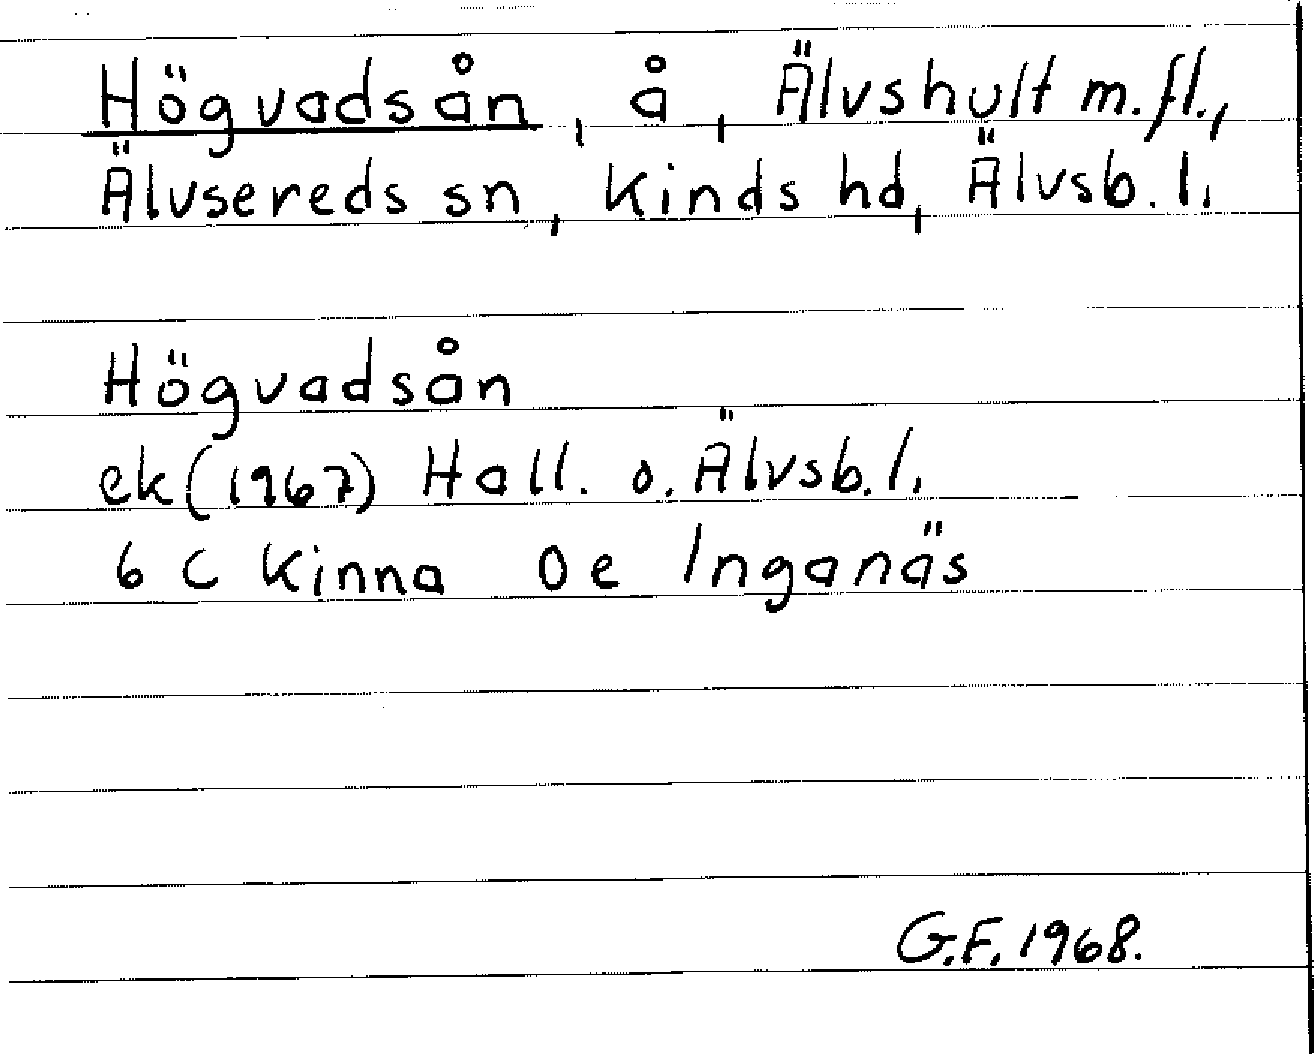 Högvadsån, å, Älvshult m.fl.,
Älvsereds sn, Kinds hd, Älvsb. l.
Högvadsån
ek (1967) Hall. o. Älvsb. l.
6 C Kinna 0 e Inganäs
G.F. 1968.